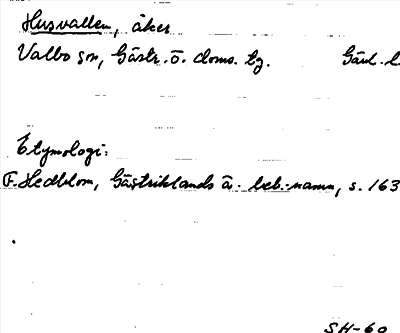 Husvallen, åker
Valbo sn, Gästr. ö. doms. tg. Gävl. l.
Etymologi:
F. Hedblom, Gästriklands ä. beb.-namn, s. 163
SH-60